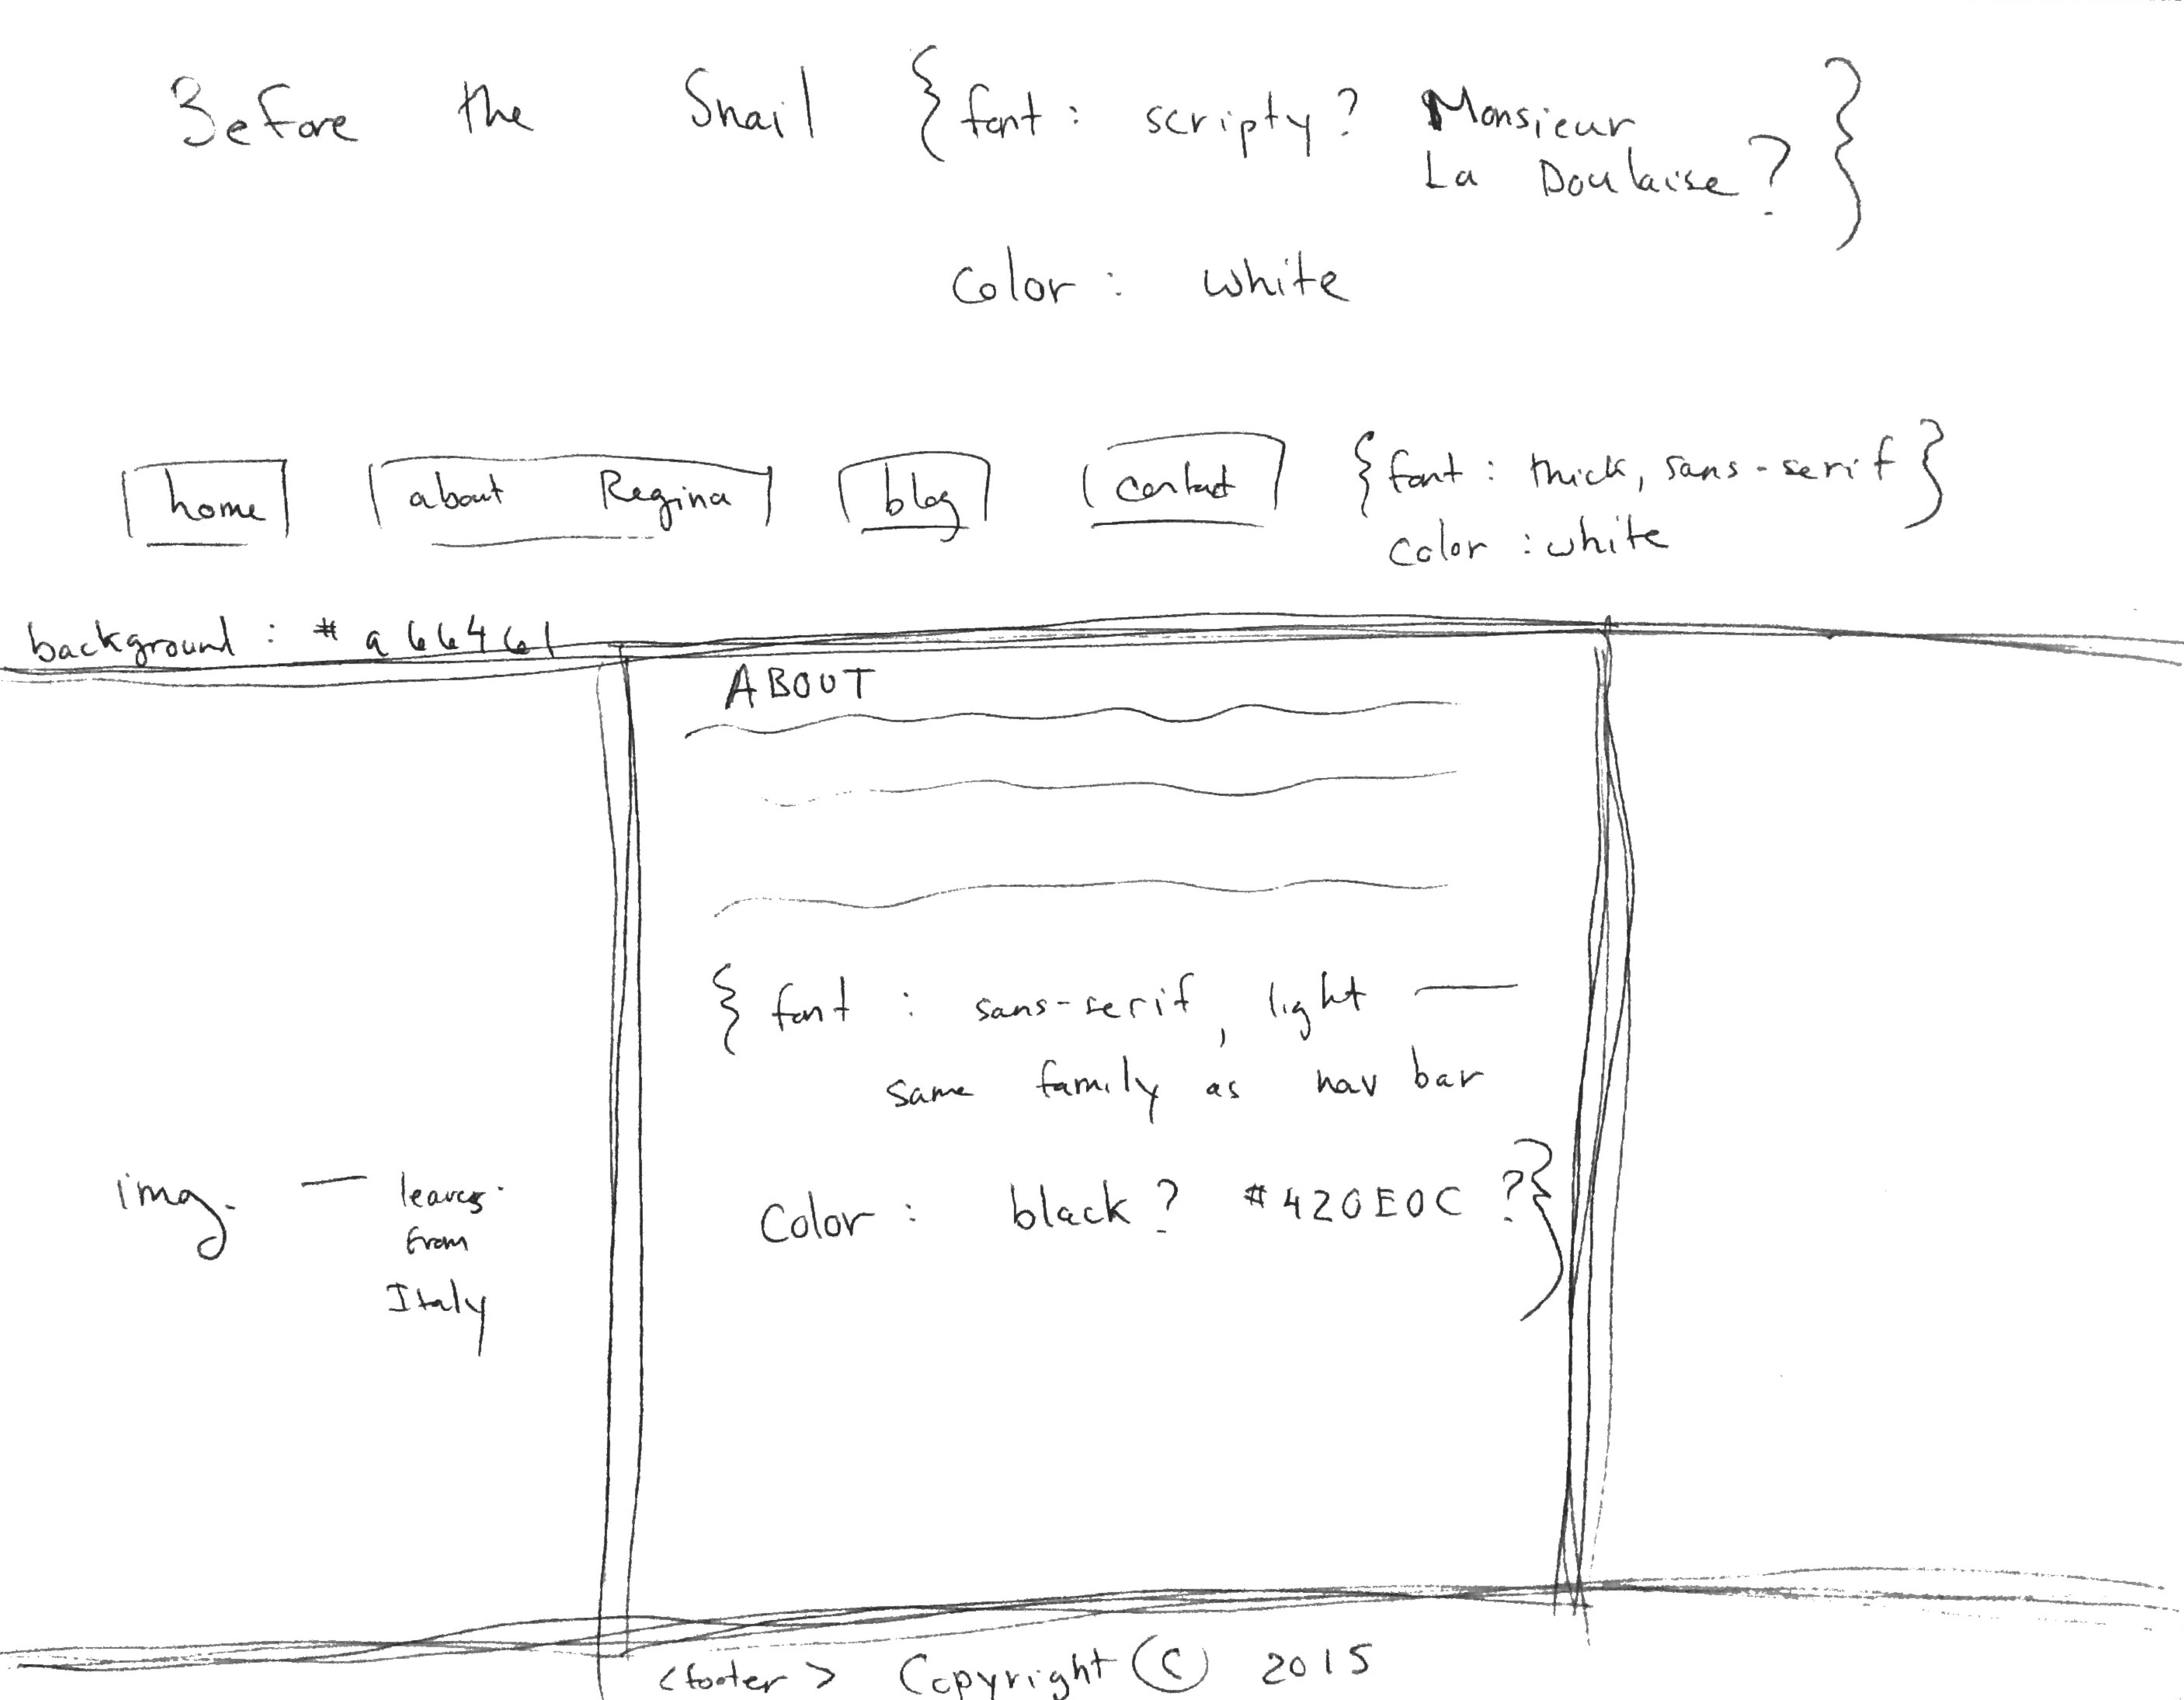 Before the Snail {font: scripty? Monsieur
La Doulaise?}
color: white
home about Regina blog contact {font: thick, sans-serif}
color: white
background: #a66461
ABOUT
{font: sans-serif, light —
same family as nav bar
Color: black? #420E0C?}
img. — leaves
from
Italy
<footer> Copyright © 2015